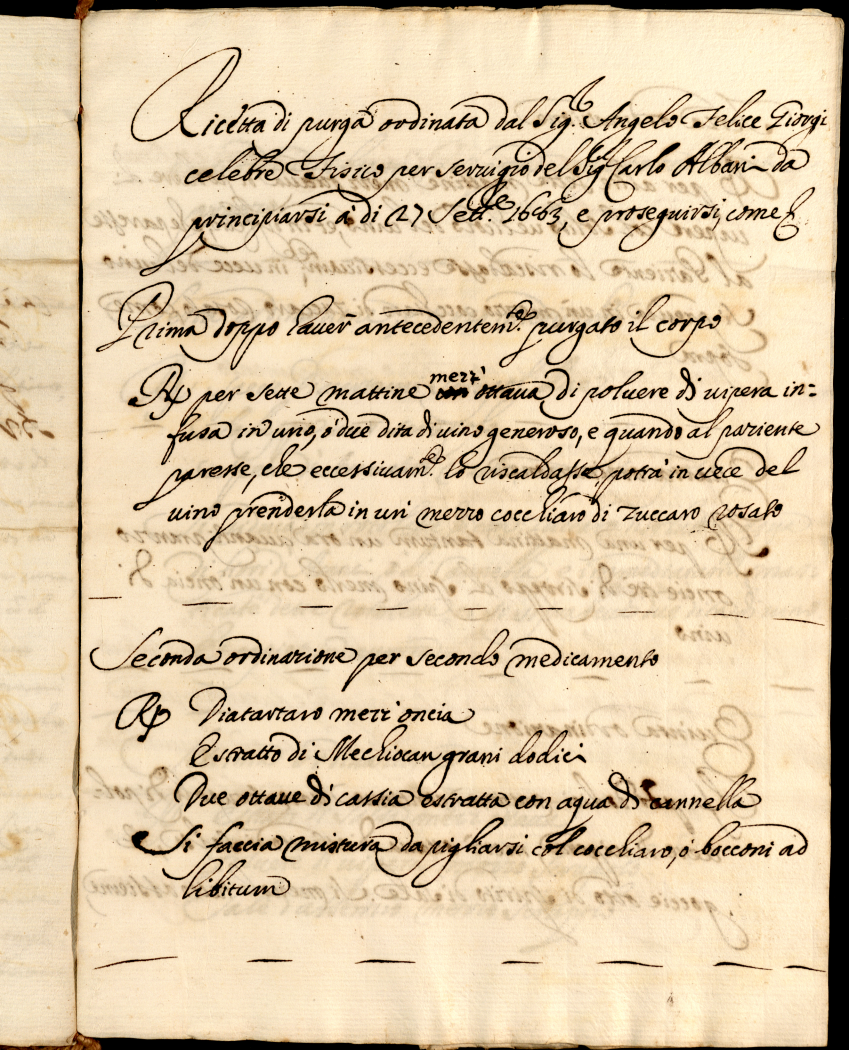 Ricetta di purga ordinata dal Sig.r Angelo Felice Giorgi
celebre Fisico per servigio del Sig.r Carlo Albani da
principiarsi à di 27 Sett.e 1663, e proseguirsi, come
Prima doppo haver antecedentem.te purgato il corpo
Rp per sette mattine mezz' ottava di polvere di vipera in=
fusa in uno, ò due dita di vino generoso, e quando al paziente
paresse, che eccessivam.te lo riscaldasse, potrà in vece del
vino prenderla in un mezzo cocchiaro di zuccaro rosato
Seconda ordinazione per secondo medicamento
Rp Diatartaro mezz' oncia
Estratto di Mechiocan grani dodici
Due ottave di cassia estratta con aqua di cannella
Si faccia mistura da pigliarsi col cocchiaro, ò bocconi ad
libitum